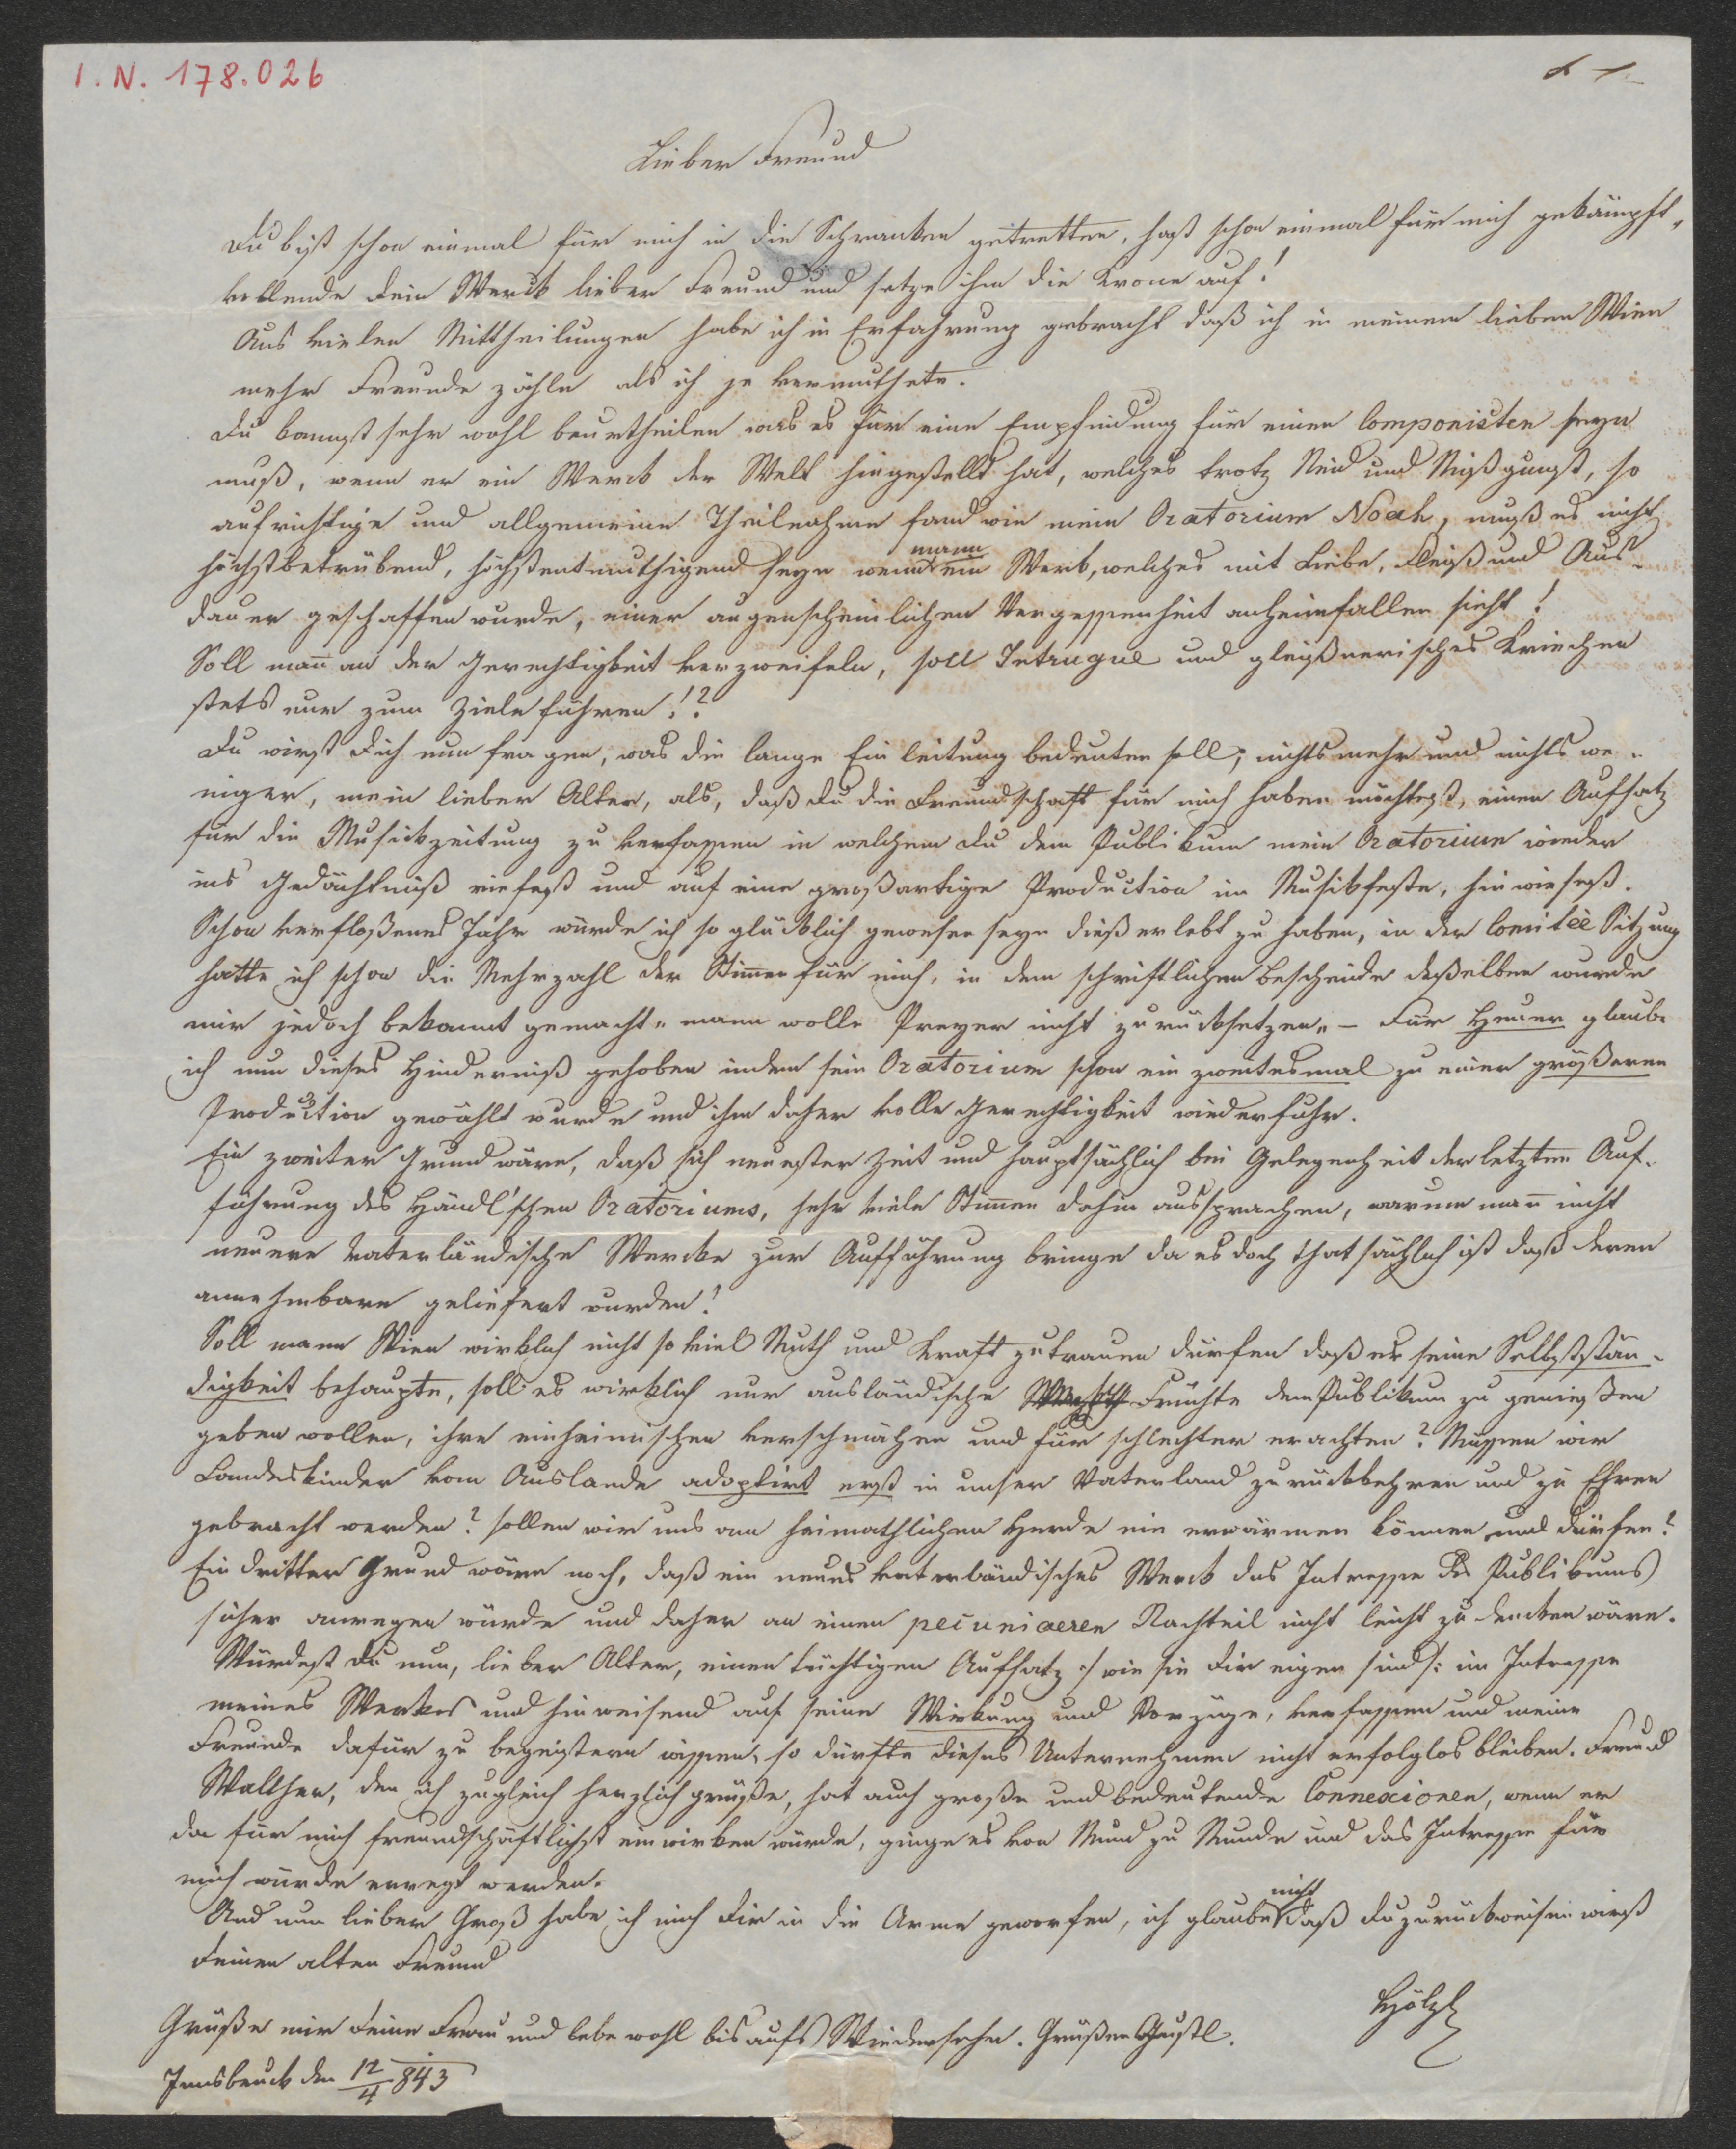 I. N. 178.026
Lieber Freund
Du bist schon einmal für mich in die Schranken getretten, hast schon einmal für mich gekämpft,
vollende dein Werck lieber Freund und setze ihm die Krone auf!
Aus vielen Mittheilungen habe ich in Erfahrung gebracht daß ich in meinem lieben Wien
mehr Freunde zähle als ich je vermuthete.
Du kannst sehr wohl beurtheilen was es für eine Empfindung für einen Componisten seyn
muß, wenn er ein Werck der Welt hingestellt hat, welches trotz Neid und Mißgunst, so
aufrichtige und allgemeine Theilnahme fand wie mein Oratorium Noah, muß es nicht
höchstbetrübend, höchstentmuthigend seyn wenn mann ein Werk, welches mit Liebe, Fleiß und Aus-
dauer geschaffen wurde, einer augenscheinlichen Vergessenheit anheimfallen sieht!
Soll man̄ an der Gerechtigkeit verzweifeln, soll Intrugue und gleißnerisches Kriechen
stets nur zum Ziele führen!?
Du wirst dich nun fragen, was die lange Einleitung bedeuten soll; nichts mehr und nichts we-
niger, mein lieber Alter, als, daß du die Freundschaft für mich haben möchtest, einen Aufsatz
für die Musickzeitung zu verfassen in welchem du dem Publikum mein Oratorium wieder
ins Gedächtniß riefest und auf eine großartige Production im Musikfeste, hinwiesest.
Schon verfloßenes Jahr würde ich so glücklich gewesen seyn dieß erlebt zu haben, in der Comitèe Sitzung
hatte ich schon die Mehrzahl der Stim̄en für mich, in dem schriftlichen Bescheide desselben wurde
mir jedoch bekannt gemacht „ mann wolle Preyer nicht zurücksetzen„ – Für Heuer glaube
ich nun dieses Hinderniß gehoben indem sein Oratorium schon ein zweitesmal zu einer größeren
Production gewählt wurde und ihm daher volle Gerechtigkeit wiederfuhr.
Ein zweiter Grund wäre, daß sich neuester Zeit und hauptsächlich bei Gelegenheit der letzten Auf-
führung des Händl'schen Oratoriums, sehr viele Stim̄en dahin aussprachen, warum man̄ nicht
neuere Vaterländische Wercke zur Aufführung bringe da es doch thatsächlich ist daß deren
annehmbare geliefert wurden!
Soll mann Wien wirklich nicht so viel Muth und Kraft zutrauen dürfen daß es seine Selbststän-
digkeit behaupte, soll es wirklich nur ausländische Früchte dem Publikum zu genießen
geben wollen, ihre einheimischen verschmähen und für schlechter erachten? Müssen wir
Landeskinder vom Auslande adoptirt erst in unser Vaterland zurückkehren und zu Ehren
gebracht werden? sollen wir uns am heimathlichen Herde nie erwärmen können und dürfen?
Ein dritter Grund wäre noch, daß ein neues vaterländisches Werck das Intresse des Publikums
sicher anregen würde und daher an einen pecuniaeren Nachteil nicht leicht zu dencken wäre.
Würdest du nun, lieber Alter, einen tüchtigen Aufsatz :/ wie sie dir eigen sind /: im Intresse
meines Werkes und hinweisend auf seine Wirkung und Vorzüge, verfassen und meine
Freunde dafür zu begeistern wissen, so dürfte dieses Unternehmen nicht erfolglos bleiben. Freund
Walther, den ich zugleich herzlich grüße, hat auch große und bedeutende Connexionen, wenn er
da für mich freundschäftlichst einwirken würde, ginge es von Mund zu Munde und das Intresse für
mich würde erregt werden.
Und nun lieber Groß habe ich mich dir in die Arme geworfen, ich glaube nicht daß du zurückweisen wirst
deinen alten Freund
Hölzl
Grüße mir deine Frau und lebe wohl bis aufs Wiedersehn. Grüße Gustl.
Innsbruck den 12/4 843